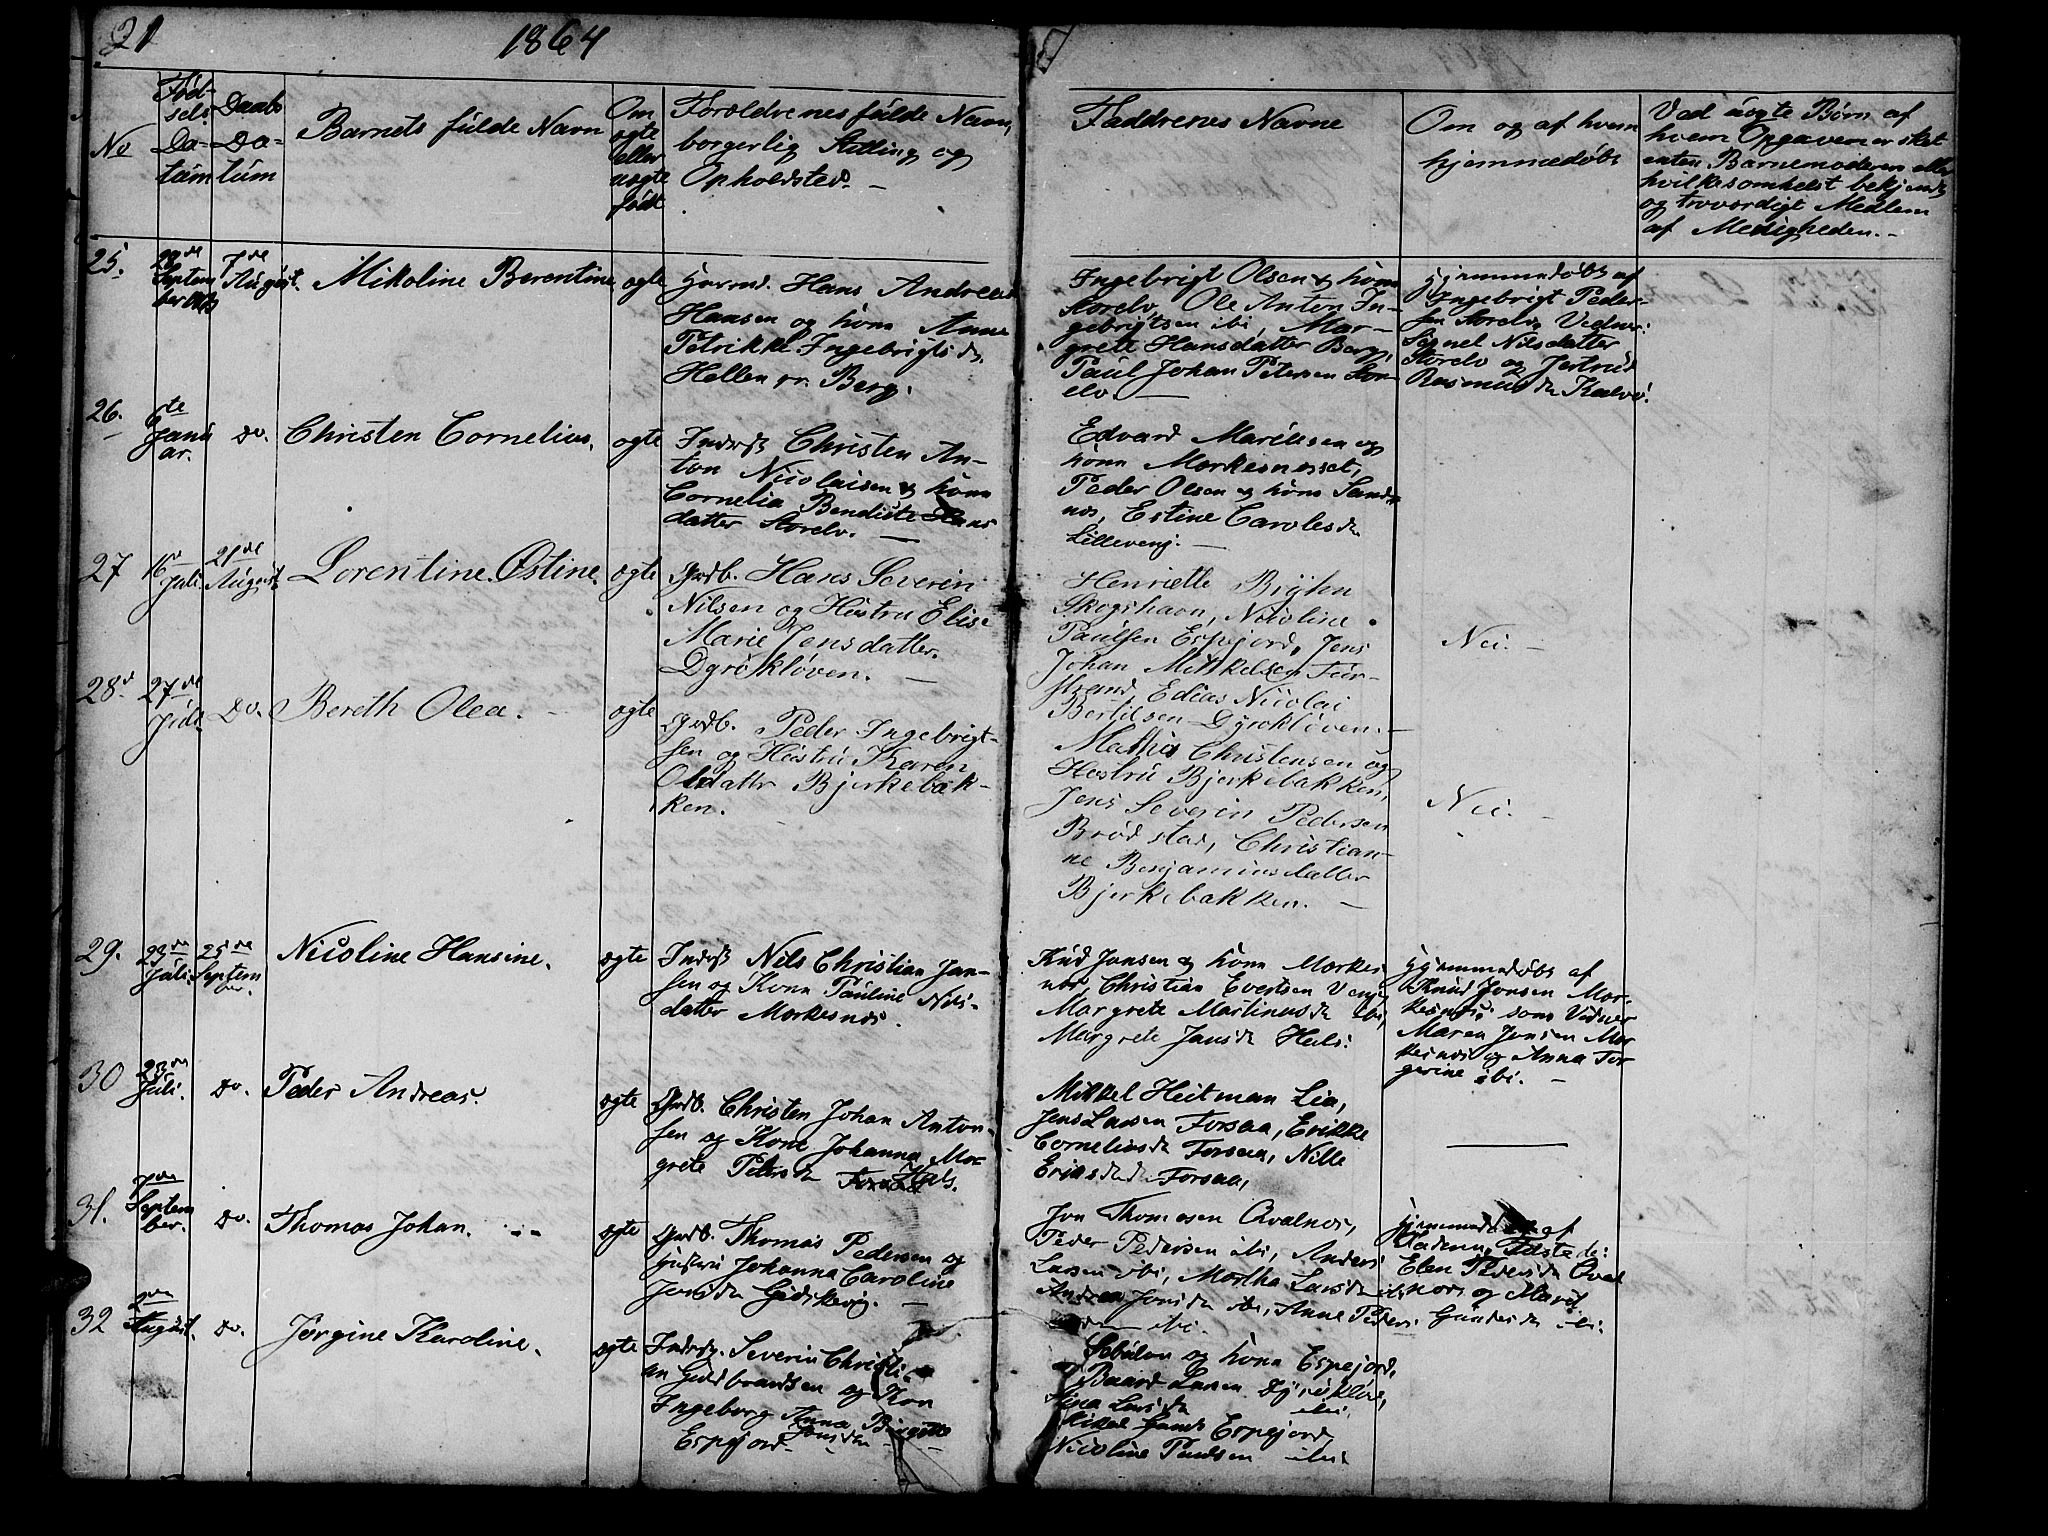 21
1864
No
Fød-
sels
Da-
tum
Daabs
Da-
tum
Barnets fulde Navn
Om
ægte
eller
uægte
født
Forældrenes fulde Navn,
borgerlig Stilling og
Opholdsted. —
Faddrenes Navne
Om og af hvem
hjemmedøbt
Ved uægte Børn af
hvem Opgaven er sket
enten Barnemoderen eller
hvilkesomhelst bekjendt
og troværdigt Medlem
af Menigheden. —
25.
Septem
ber
7de
August.
Mikoline Berentine
ægte
Hans Andreas
Hansen og kone Anne
Petrikke Ingebrigtsd.
Hellen Berg.
Ingebrigt Olsen & kone
Storelv, Ole Anton In-
gebrigtsen ibi, Mar-
grete Hansdatter Berg,
Paul Johan Petersen Stor-
elv. —
Hjemmedøbt af
Ingebrigt Peder-
sen Storelv. Vidner:
Nilsdatter
Storelv og Jertrud
Rasmusd. Kalvø.
26.
6te
Janu
ar.
Do.
Christen Cornelius.
ægte
Inderst Christen An-
ton Nicolaisen & kone
Cornelia Bendicte Hans
datter Storelv. —
Edvard
kone Markesnesset,
Peder Olsen & kone Sand-
nes, Estine Carolesd.
Lilleveng. —
27
16
Juli.
21de
August
Lorentine Østine.
ægte
Gaardb. Hans Severin
Nilsen og Hustru Elise
Marie Jensdatter.
Dyrøkløven. —
Henriette
Skogshavn, Nicoline
Paulsen Espejord, Jens
Johan Mikkelsen Fur-
strand, Edias Nicolai
Bertilsen Dyrøkløven. —
Nei. —
28.
27de
Juli
Do.
Bereth Olea. —
ægte
Gaardb. Peder Ingebrigt-
sen og Hustru Karen
Olsdattr Bjerkebak-
ken.
Mathis Christensen og
Hustru Bjerkebakken,
Jens Severin Pedersen
Brødstad, Christian-
ne Benjaminsdatter
Bjerkebakken. —
Nei. —
29.
23de
Juli.
25de
Septem
ber.
Nicoline Hansine.
ægte
Inderst Nils Christian Jan-
sen og Kone Pauline Nils-
datter Markesnes.
Knud Jonsen & kone Markes
nes, Christian Evertsen Veng,
Margrete Martinusd. ibi,
Margrete Jansd. Hals.
Hjemmedøbt af
Knud Jonsen Mar-
kesnes, som Vidner
Maren Jonsen Mar-
kesnes og Anna Tor
gerine ibi. —
30
23de
Juli.
Do.
Peder Andreas.
ægte
Gaardb. Christen Johan Anton-
sen og Kone Johanna Mar-
grete Petersd. Hals.
Mikkel Heitman Lia,
Jens Larsen Forsaa, Erikke
Corneliusd. Forsaa, Nille
Forsaa,
31.
7de
Septem
ber.
Do.
Thomas Johan.
ægte
Gaardb. Thomas Pedersen og
Hustru Johanna Caroline
Jonsd.
Jon Thomesen Qvalnes,
Peder Pedersen ibi, Anders
Larsen ibi, Martha Larsd.
Andrea Jonsd. ibi, Anne Peders
ibi.
af
Elen Pedersd. Qval
nes og Marit
32
2den
August.
Do.
Jørgine Karoline.
ægte
Inderst. Severin Christi-
an Guldbrandsen og Kon
Ingeborg Anna Birgitte
Jonsd.
Espejord. —
Sebulon og kone Espejord,
Baard Larsen Dyrøkløv,
Larsd. ibi,
Mikkel Espejord
Nicoline Paulsen ibi.